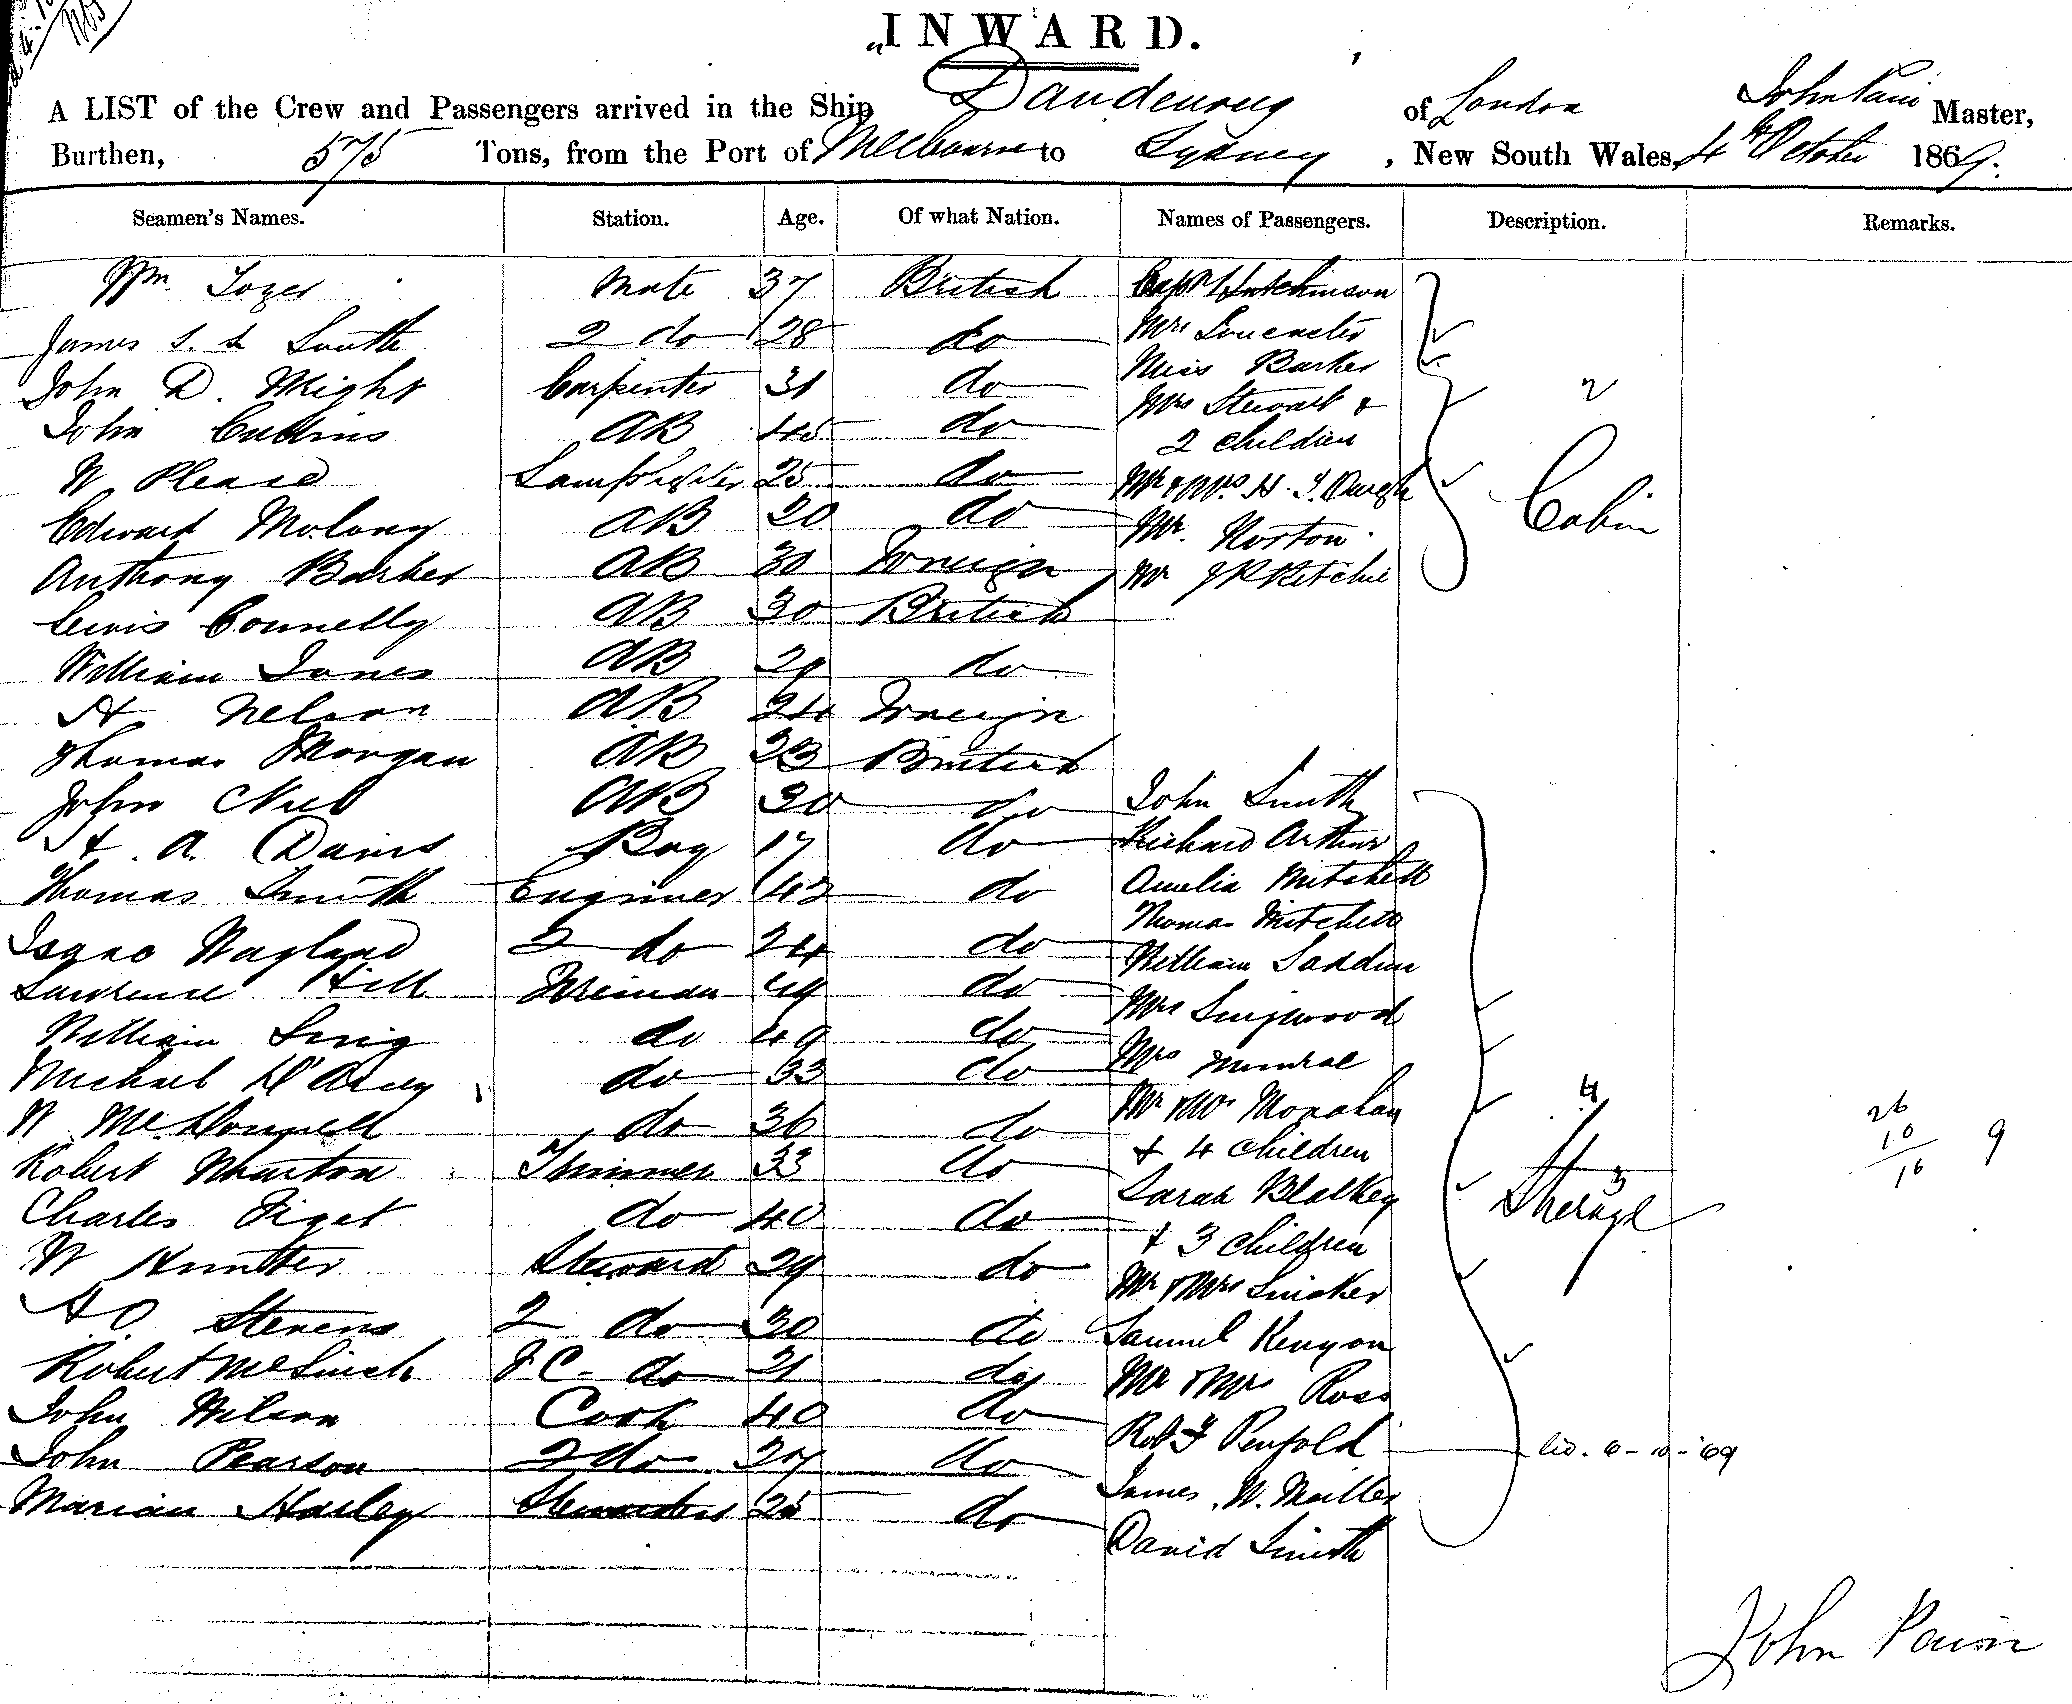 INWARD.
A LIST of the Crew and Passengers arrived in the Ship Dandenong of London John Pain Master,
Burthen, 575 Tons, from the Port of Melbourne to Sydney, New South Wales, 4th October 1869.
Seamen's Names. Station. Age. Of what Nation. Names of Passengers. Description. Remarks.
Wm Tozer Mate 37 British Capt Hutchinson
James S. L Smith 2 do 28 do Mrs Loncaster
John D. Wright Carpenter 31 do Miss Barker
John Cullins AB 45 do Mrs Stewart & 2
2 children
W Please Lamplighter 25 do Mr & Mrs H. T. Cabin
Edward Molony AB 20 do Mr. Norton
Anthony Barker AB 30 Foreign Mr J R Ritchie
Lewis Connelly AB 30 British
William Jones AB 29 do
H Nelson AB 24 Foreign
Thomas Morgan AB 23 British
John AB 30 do John Smith
H. A. Davis Boy 17 do Richard Arthur
Thomas Smith Engineer 43 do Amelia Mitchell
Thomas Mitchell
Isaac Wayland 2 do 24 do William
Lawrence Hill Fireman 49 do Mrs
William do 49 do Mrs Munroe
Michael D'Arcy do 33 do Mr & Mrs Monahan 4
W McDonnell do 36 do & 4 children 26
10 9
16
Robert Trimmer 33 do Sarah Blalkey 3 Steerage
Charles do 40 do & 3 children
W Hunter Steward 29 do Mr & Mrs
H O Stevens 2 do 30 do Samuel Kenyon
Robert McLinch F C. do 21 do Mr & Mrs Ross
John Wilson Cook 40 do Robt F Penfold 6-10-69
John Pearson 2 do 27 do James W. Miller
Marian Harley Stewardess 25 do David Smith
John Pain